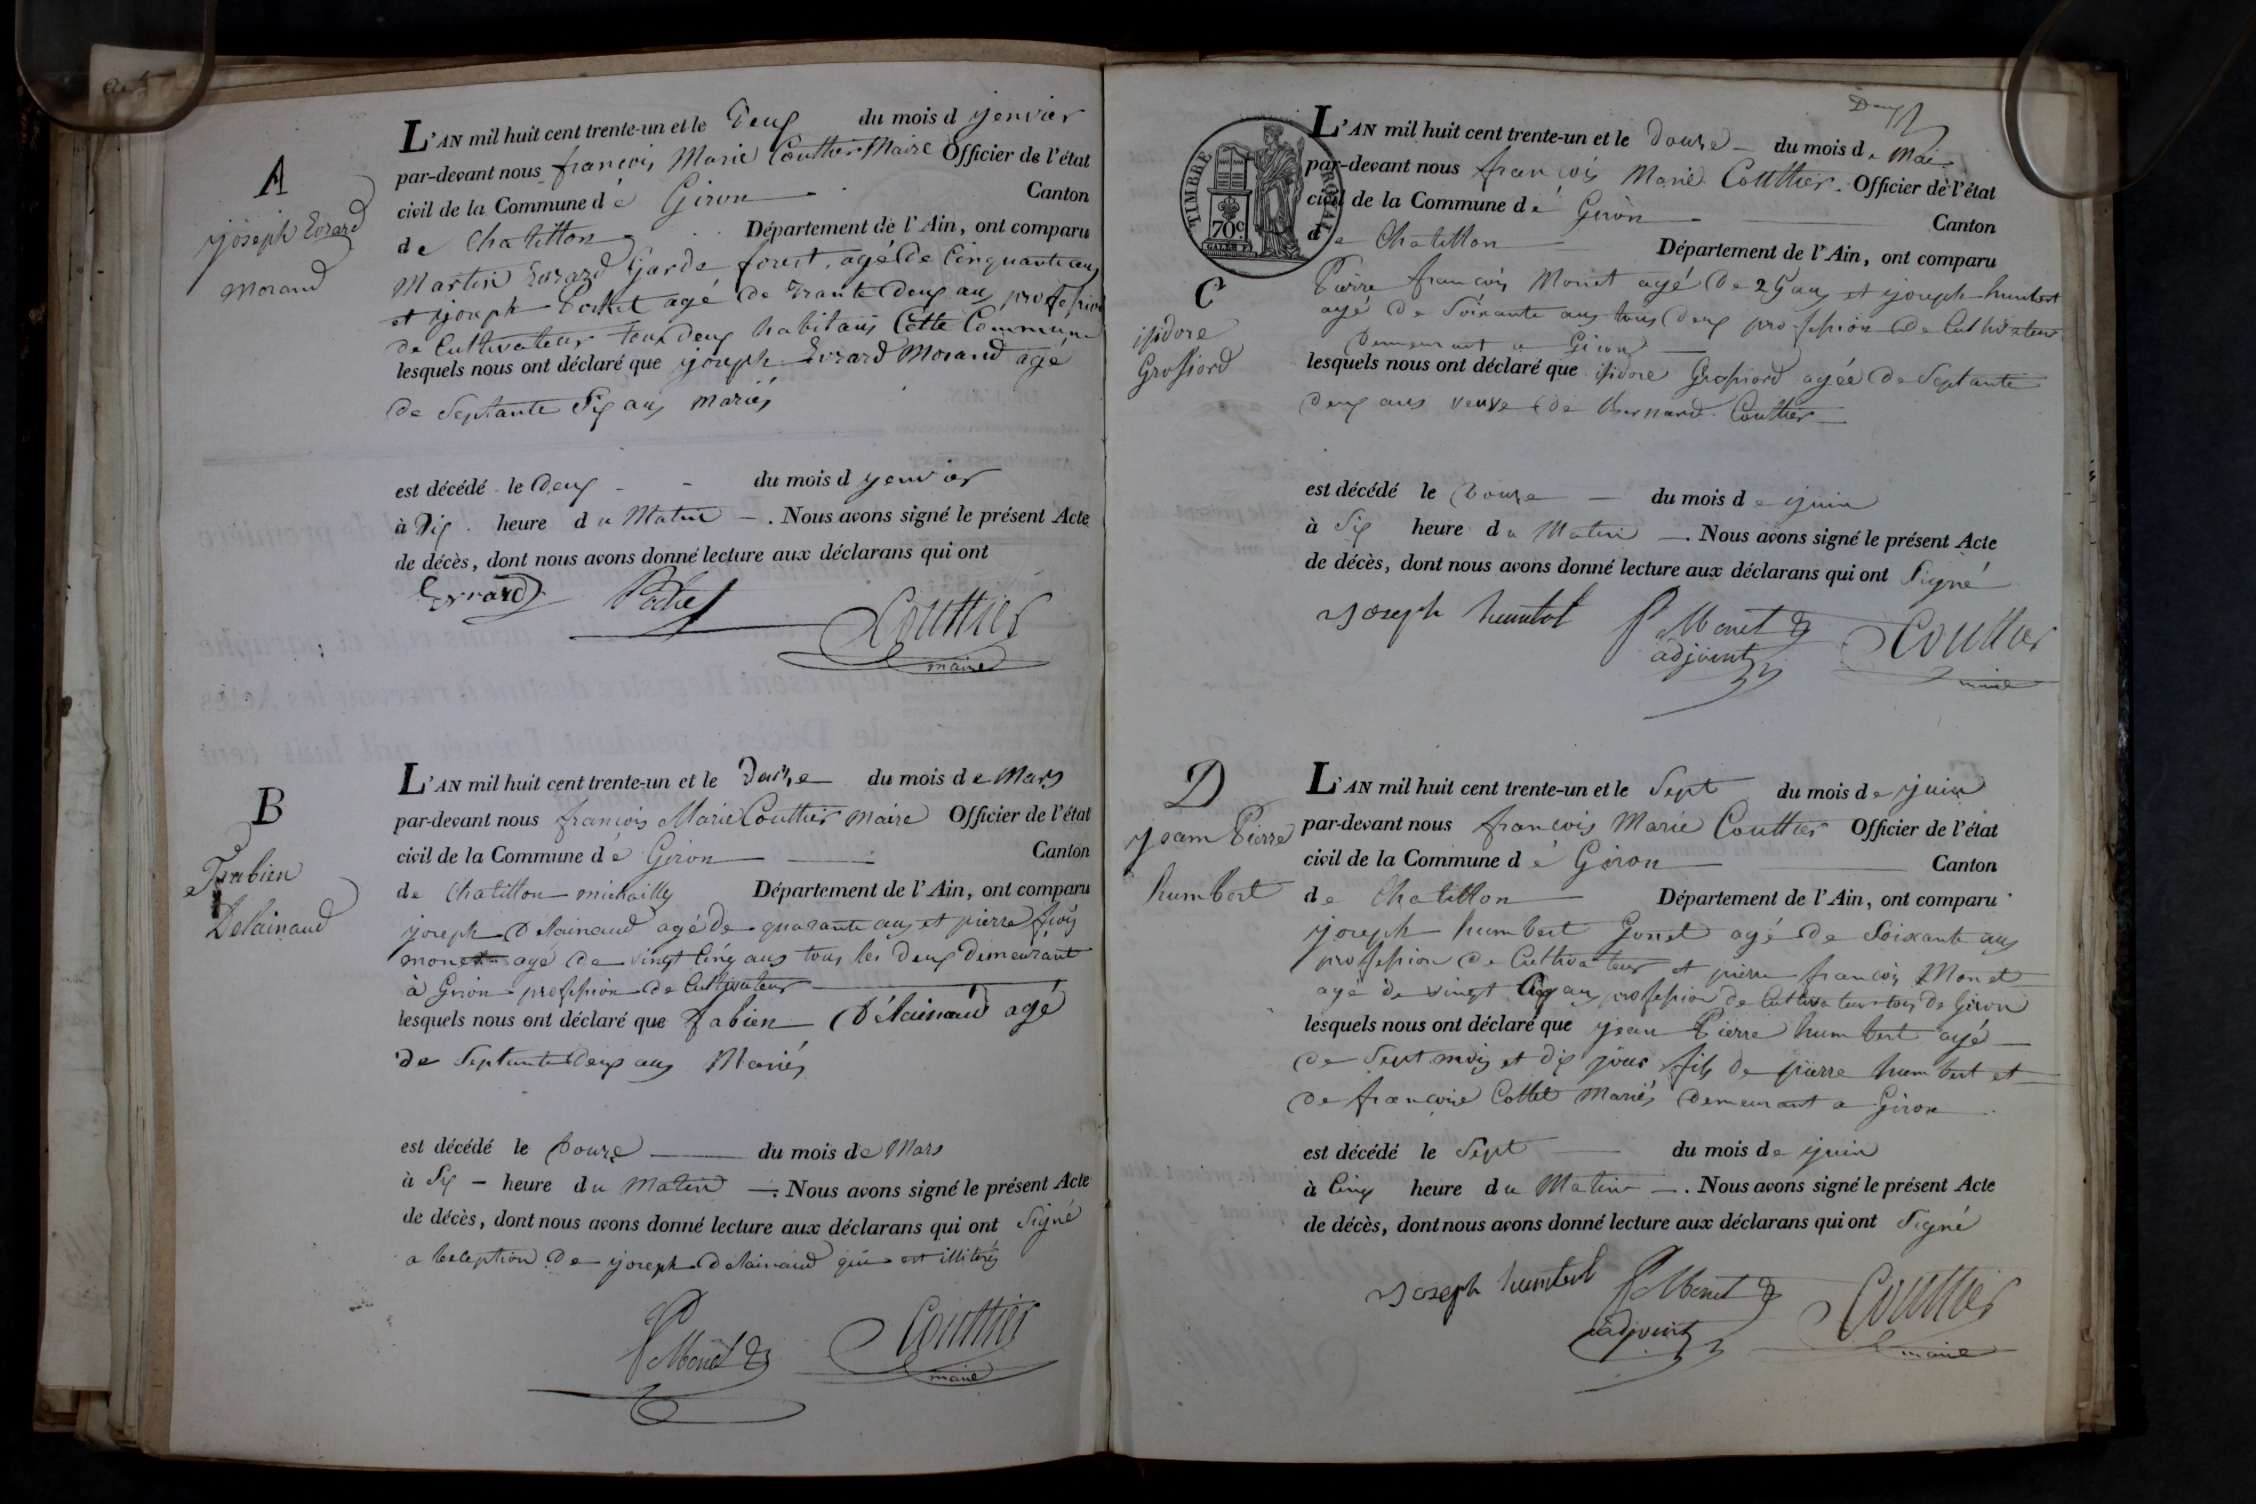 A
joseph Evrard
Morand
L'AN mil huit cent trente-un et le Deux du mois d jenvier
par-devant nous françois Marie Coutthier Maire Officier de l'état
civil de la Commune d é Giron Canton
de Chatillon Département de l'Ain, ont comparu
Martin Evrard Garde forest. agé de Cinquante ans
et joseph Pochet agé de Trante deux ans profession
de Cultivateur tous deux habitans Cette Commune
lesquels nous ont déclaré que joseph Evrard Morand agé
de Septante Six ans Mariés
est décédé le deux du mois d jenvier
à Dix heure du Matin. Nous avons signé le présent Acte
de décès, dont nous avons donné lecture aux déclarans qui ont
Evrard Pochet Coutthier
maire
B
Fabien
Delainaud
L'AN mil huit cent trente-un et le Douze du mois de Mars
par-devant nous françois Marie Coutthier maire Officier de l'état
civil de la Commune d é Giron Canton
de Chatillon michailly Département de l'Ain, ont comparu
joseph Delainaud agé de quarante ans et pierre frois
monet agé de vingt Cinq ans tous les deux Demeurant
à Giron profession de Cultivateur
lesquels nous ont déclaré que fabien Délainaud agé
de Septante deux ans Mariés
est décédé le Douze du mois de Mars
à Six heure du Matin. Nous avons signé le présent Acte
de décès, dont nous avons donné lecture aux déclarans qui ont Signé
a leception de joseph Delainaud qui est illiterés
P f Monet Coutthier
maire
Deux
TIMBRE ROYAL
70c
L'AN mil huit cent trente-un et le Douze du mois de Mai
par-devant nous françois Marie Coutthier. Officier de l'état
civil de la Commune d é Giron Canton
de Chatillon Département de l'Ain, ont comparu
C
isidore
Grossiord
Pierre françois Monet agé de 25 ans et joseph humbert
agé de Soixante ans tous deux profession de Cultivateur
Demeurant a Giron
lesquels nous ont déclaré que isidore Grossiord agée de Septante
deux ans veuve de Bernard Coutthier
est décédé le Douze du mois de juin
à Six heure du Matin. Nous avons signé le présent Acte
de décès, dont nous avons donné lecture aux déclarans qui ont Signé
joseph humbet P f Monet Coutthier
adjoint maire
D
jean Pierre
humbert
L'AN mil huit cent trente-un et le Sept du mois de juin
par-devant nous françois Marie Coutthier Officier de l'état
civil de la Commune d é Giron Canton
de Chatillon Département de l'Ain, ont comparu
joseph humbert Gonet agé de Soixante ans
proffession de Cultivateur et pierre françois Monet
agé de vingt Cinq ans proffession de Cultivateur tous de Giron
lesquels nous ont déclaré que jean Pierre humbert agé
de Sept mois et dix jour fils de pierre humbert et
de françoise Cottet Mariés Demeurant a Giron
est décédé le Sept du mois de juin
à Cinq heure du Matin. Nous avons signé le présent Acte
de décès, dont nous avons donné lecture aux déclarans qui ont Signé
joseph humbet P f Monet Coutthier
adjoint maire